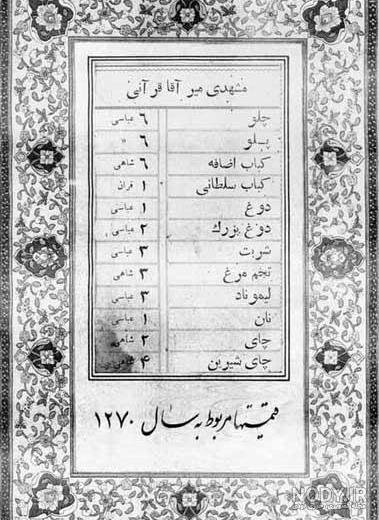 مشهدی میر آقا قرآنی
چلو ۶ عباسی
پلو ۶ »
کباب اضافه ۶ شاهی
کباب سلطانی ۱ قران
دوغ ۱ عباسی
دوغ بزرگ ۲ عباسی
شربت ۳ عباسی
تخم مرغ ۳ شاهی
لیموناد ۳ عباسی
نان ۱ عباسی
چای ۲ شاهی
چای شیرین ۴ شاهی
قیمتها مربوط به سال ۱۲۷۰
NODY.IR